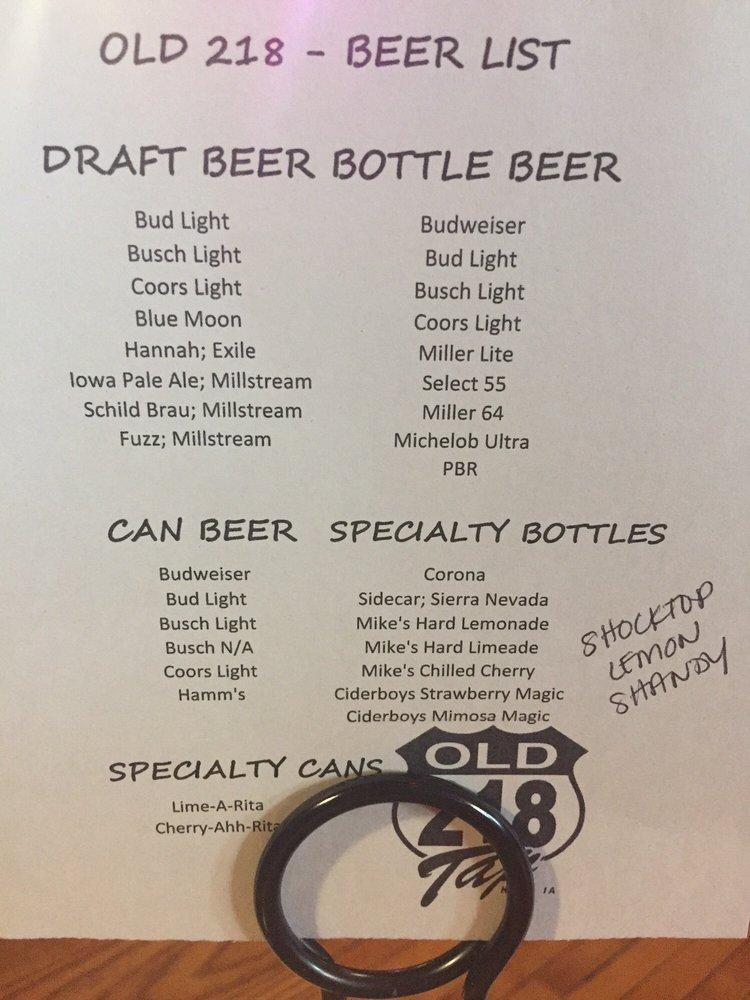 OLD 218 - BEER LIST
DRAFT BEER
Bud Light
Busch Light
Coors Light
Blue Moon
Hannah; Exile
Iowa Pale Ale; Millstream
Schild Brau; Millstream
Fuzz; Millstream
BOTTLE BEER
Budweiser
Bud Light
Busch Light
Coors Light
Miller Lite
Select 55
Miller 64
Michelob Ultra
PBR
CAN BEER
Budweiser
Bud Light
Busch Light
Busch N/A
Coors Light
Hamm's
SPECIALTY BOTTLES
Corona
Sidecar; Sierra Nevada
Mike's Hard Lemonade
Mike's Hard Limeade
Mike's Chilled Cherry
Ciderboys Strawberry Magic
Ciderboys Mimosa Magic
SHOCKTOP
LEMON
SHANDY
SPECIALTY CANS
Lime-A-Rita
Cherry-Ahh-Rita
OLD
218
Tap
IA